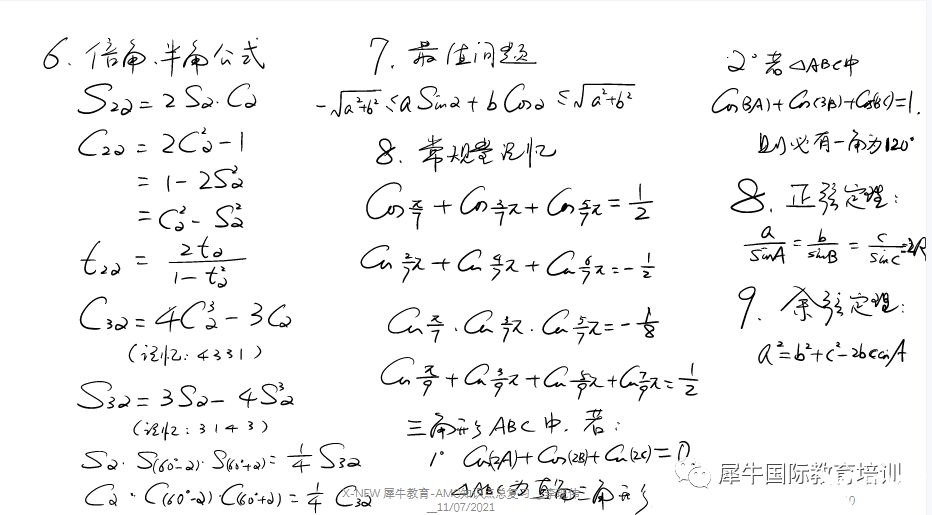 6. 倍角、半角公式
S2α = 2Sα·Cα
C2α = 2C²α - 1
= 1 - 2S²α
= C²α - S²α
t2α = 2tα / (1 - t²α)
C3α = 4C³α - 3Cα
(记忆: 4331)
S3α = 3Sα - 4S³α
(记忆: 3143)
Sα · S(60°-α) · S(60°+α) = 1/4 S3α
Cα · C(60°-α) · C(60°+α) = 1/4 C3α
7. 最值问题
-√(a²+b²) ≤ a Sinα + b Cosα ≤ √(a²+b²)
8. 常规量记忆
Cos π/7 + Cos 3/7 π + Cos 5/7 π = 1/2
Cos 2/7 π + Cos 4/7 π + Cos 6/7 π = -1/2
Cos π/7 · Cos 3/7 π · Cos 5/7 π = -1/8
Cos π/9 + Cos 3/9 π + Cos 5/9 π + Cos 7/9 π = 1/2
三角形ABC中,若:
1° Cos(2A) + Cos(2B) + Cos(2C) = 0
△ABC为直角三角形
2° 若△ABC中
Cos(3A) + Cos(3B) + Cos(3C) = 1,
则必有一角为120°
8. 正弦定理:
a/sinA = b/sinB = c/sinC = 2R
9. 余弦定理:
a² = b² + c² - 2bc cosA
X-NEW 犀牛教育-AMC知识点总复习
_11/07/2021
9
犀牛国际教育培训